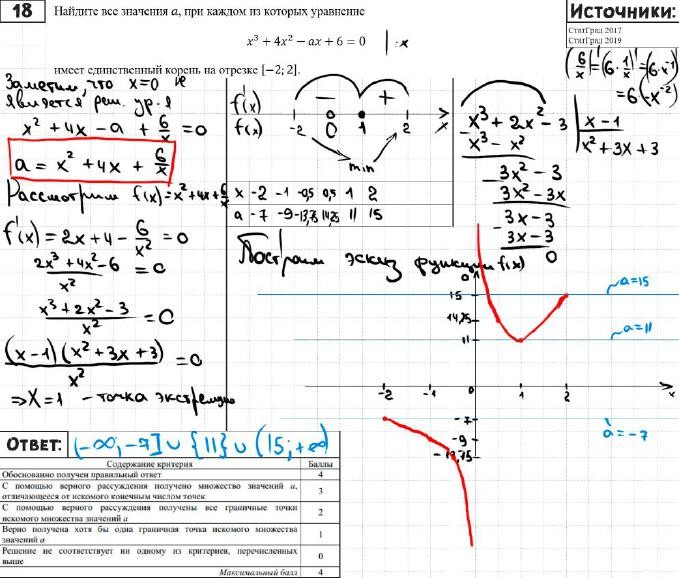 18
Найдите все значения a, при каждом из которых уравнение
x³ + 4x² − ax + 6 = 0 | : x
имеет единственный корень на отрезке [−2; 2].
Источники:
СтатГрад 2017
СтатГрад 2019
(6/x)' = (6 · 1/x)' = (6 · x⁻¹)'
= 6(−x⁻²)
Заметим, что x=0 не
является реш. ур-я
x² + 4x − a + 6/x = 0
a = x² + 4x + 6/x
Рассмотрим f(x) = x² + 4x + 6/x
f'(x) = 2x + 4 − 6/x² = 0
2x³ + 4x² − 6 / x² = 0
x³ + 2x² − 3 / x² = 0
(x−1)(x² + 3x + 3) / x² = 0
⇒ x = 1 – точка экстремума
f'(x) − +
f(x) -2 0 1 2 x
min
x -2 -1 -0,5 0,5 1 2
a -7 -9 -13,75 14,25 11 15
x³ + 2x² − 3 | x − 1
x³ − x² | x² + 3x + 3
3x² − 3
3x² − 3x
3x − 3
3x − 3
0
Построим эскиз функции f(x)
a
15
a=15
14,25
a=11
11
-2 -1 0 1 2 x
-7
a=-7
-9
-13,75
ОТВЕТ: (−∞; −7] ∪ {11} ∪ (15; +∞)
Содержание критерия Баллы
Обоснованно получен правильный ответ 4
С помощью верного рассуждения получено множество значений a,
отличающееся от искомого конечным числом точек 3
С помощью верного рассуждения получены все граничные точки
искомого множества значений a 2
Верно получена хотя бы одна граничная точка искомого множества
значений a 1
Решение не соответствует ни одному из критериев, перечисленных
выше 0
Максимальный балл 4